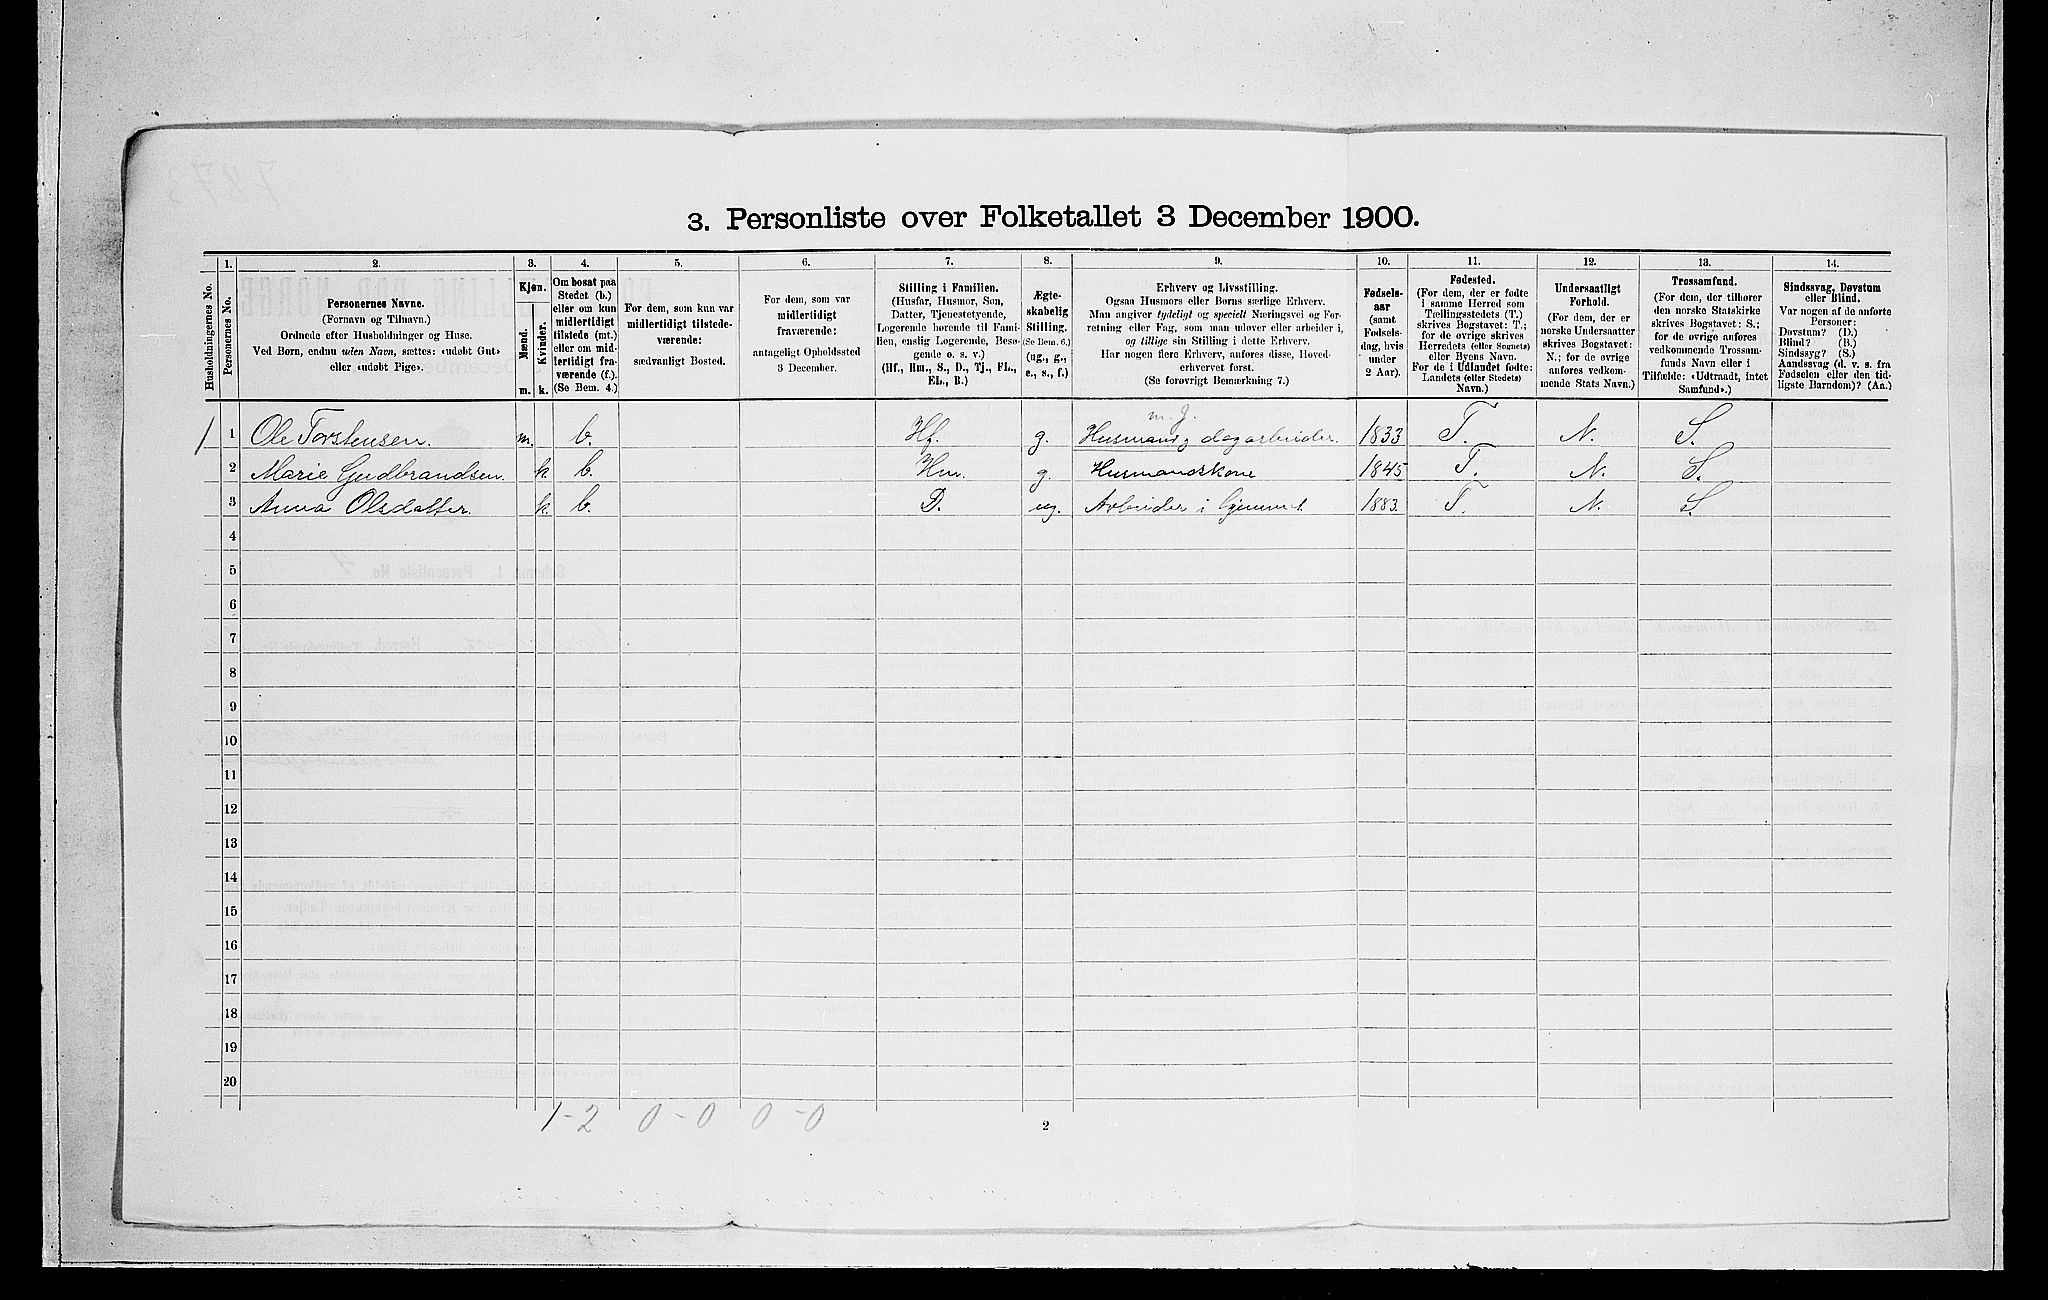 3. Personliste over Folketallet 3 December 1900.
Husholdningernes No.
1.
Personernes No.
2.
Personernes Navne.
(Fornavn og Tilnavn.)
Ordnede efter Husholdninger og Huse.
Ved Børn, endnu uden Navn, sættes: «udøbt Gut»
eller «udøbt Pige».
3.
Kjøn.
Mænd.
Kvinder.
m. k.
4.
Om bosat paa
Stedet (b.)
eller om kun
midlertidigt
tilstede (mt.)
eller om mid-
lertidigt fra-
værende (f.).
(Se Bem. 4.)
5.
For dem, som kun var
midlertidigt tilstede-
værende:
sædvanligt Bosted.
6.
For dem, som var
midlertidigt
fraværende:
antageligt Opholdssted
3 December.
7.
Stilling i Familien.
(Husfar, Husmor, Søn,
Datter, Tjenestetyende,
Logerende hørende til Fami-
lien, enslig Logerende, Besø-
gende o. s. v.)
(Hf., Hm., S., D., Tj., FL.,
EL., B.)
8.
Ægte-
skabelig
Stilling.
(Se Bem. 6.)
(ug., g.,
e., s., f.)
9.
Erhverv og Livsstilling.
Ogsaa Husmors eller Børns særlige Erhverv.
Man angiver tydeligt og specielt Næringsvei og For-
retning eller Fag, som man udøver eller arbeider i,
og tillige sin Stilling i dette Erhverv.
Har nogen flere Erhverv, anføres disse, Hoved-
erhvervet først.
(Se forøvrigt Bemærkning 7.)
10.
Fødsels-
aar
(samt
Fødsels-
dag, hvis
under
2 Aar).
11.
Fødested.
(For dem, der er fødte
i samme Herred som
Tællingsstedets (T.)
skrives Bogstavet: T.;
for de øvrige skrives
Herredets (eller Sognets)
eller Byens Navn.
For de i Udlandet fødte:
Landets (eller Stedets)
Navn.)
12.
Undersaatligt
Forhold.
(For dem, der er
norske Undersaatter
skrives Bogstavet:
N.; for de øvrige
anføres vedkom-
mende Stats Navn.)
13.
Trossamfund.
(For dem, der tilhører
den norske Statskirke
skrives Bogstavet: S.;
for de øvrige anføres
vedkommende Trossam-
funds Navn eller i
Tilfælde: «Udtraadt, intet
Samfund».)
14.
Sindssvag, Døvstum
eller Blind.
Var nogen af de anførte
Personer:
Døvstum? (D.)
Blind? (B.)
Sindssyg? (S.)
Aandssvag (d. v. s. fra
Fødselen eller den tid-
ligste Barndom)? (Aa.)
m. j.
1 1 Ole Torstensen. m. b. Hf. g. Husmand, dagarbeider. 1833 T. N. S.
2 Marie Gudbrandsen. k b. Hm. g. Husmandskone 1845 T. N. S.
3 Anna Olsdatter k. b. D. ug. Arbeider i hjemmet 1883. T. N. S.
4
5
6
7
8
9
10
11
12
13
14
15
16
17
18
19
20
1-2 0-0 0-0
2